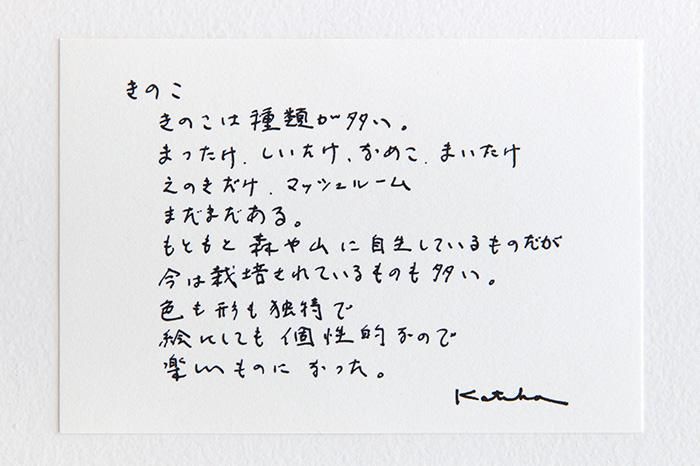 きのこ
きのこは種類が多い。
まったけ、しいたけ、なめこ、まいたけ
えのきだけ、マッシュルーム
まだまだある。
もともと森や山に自生しているものだが
今は栽培されているものも多い。
色も形も独特で
絵にしても個性的なので
楽しいものになった。